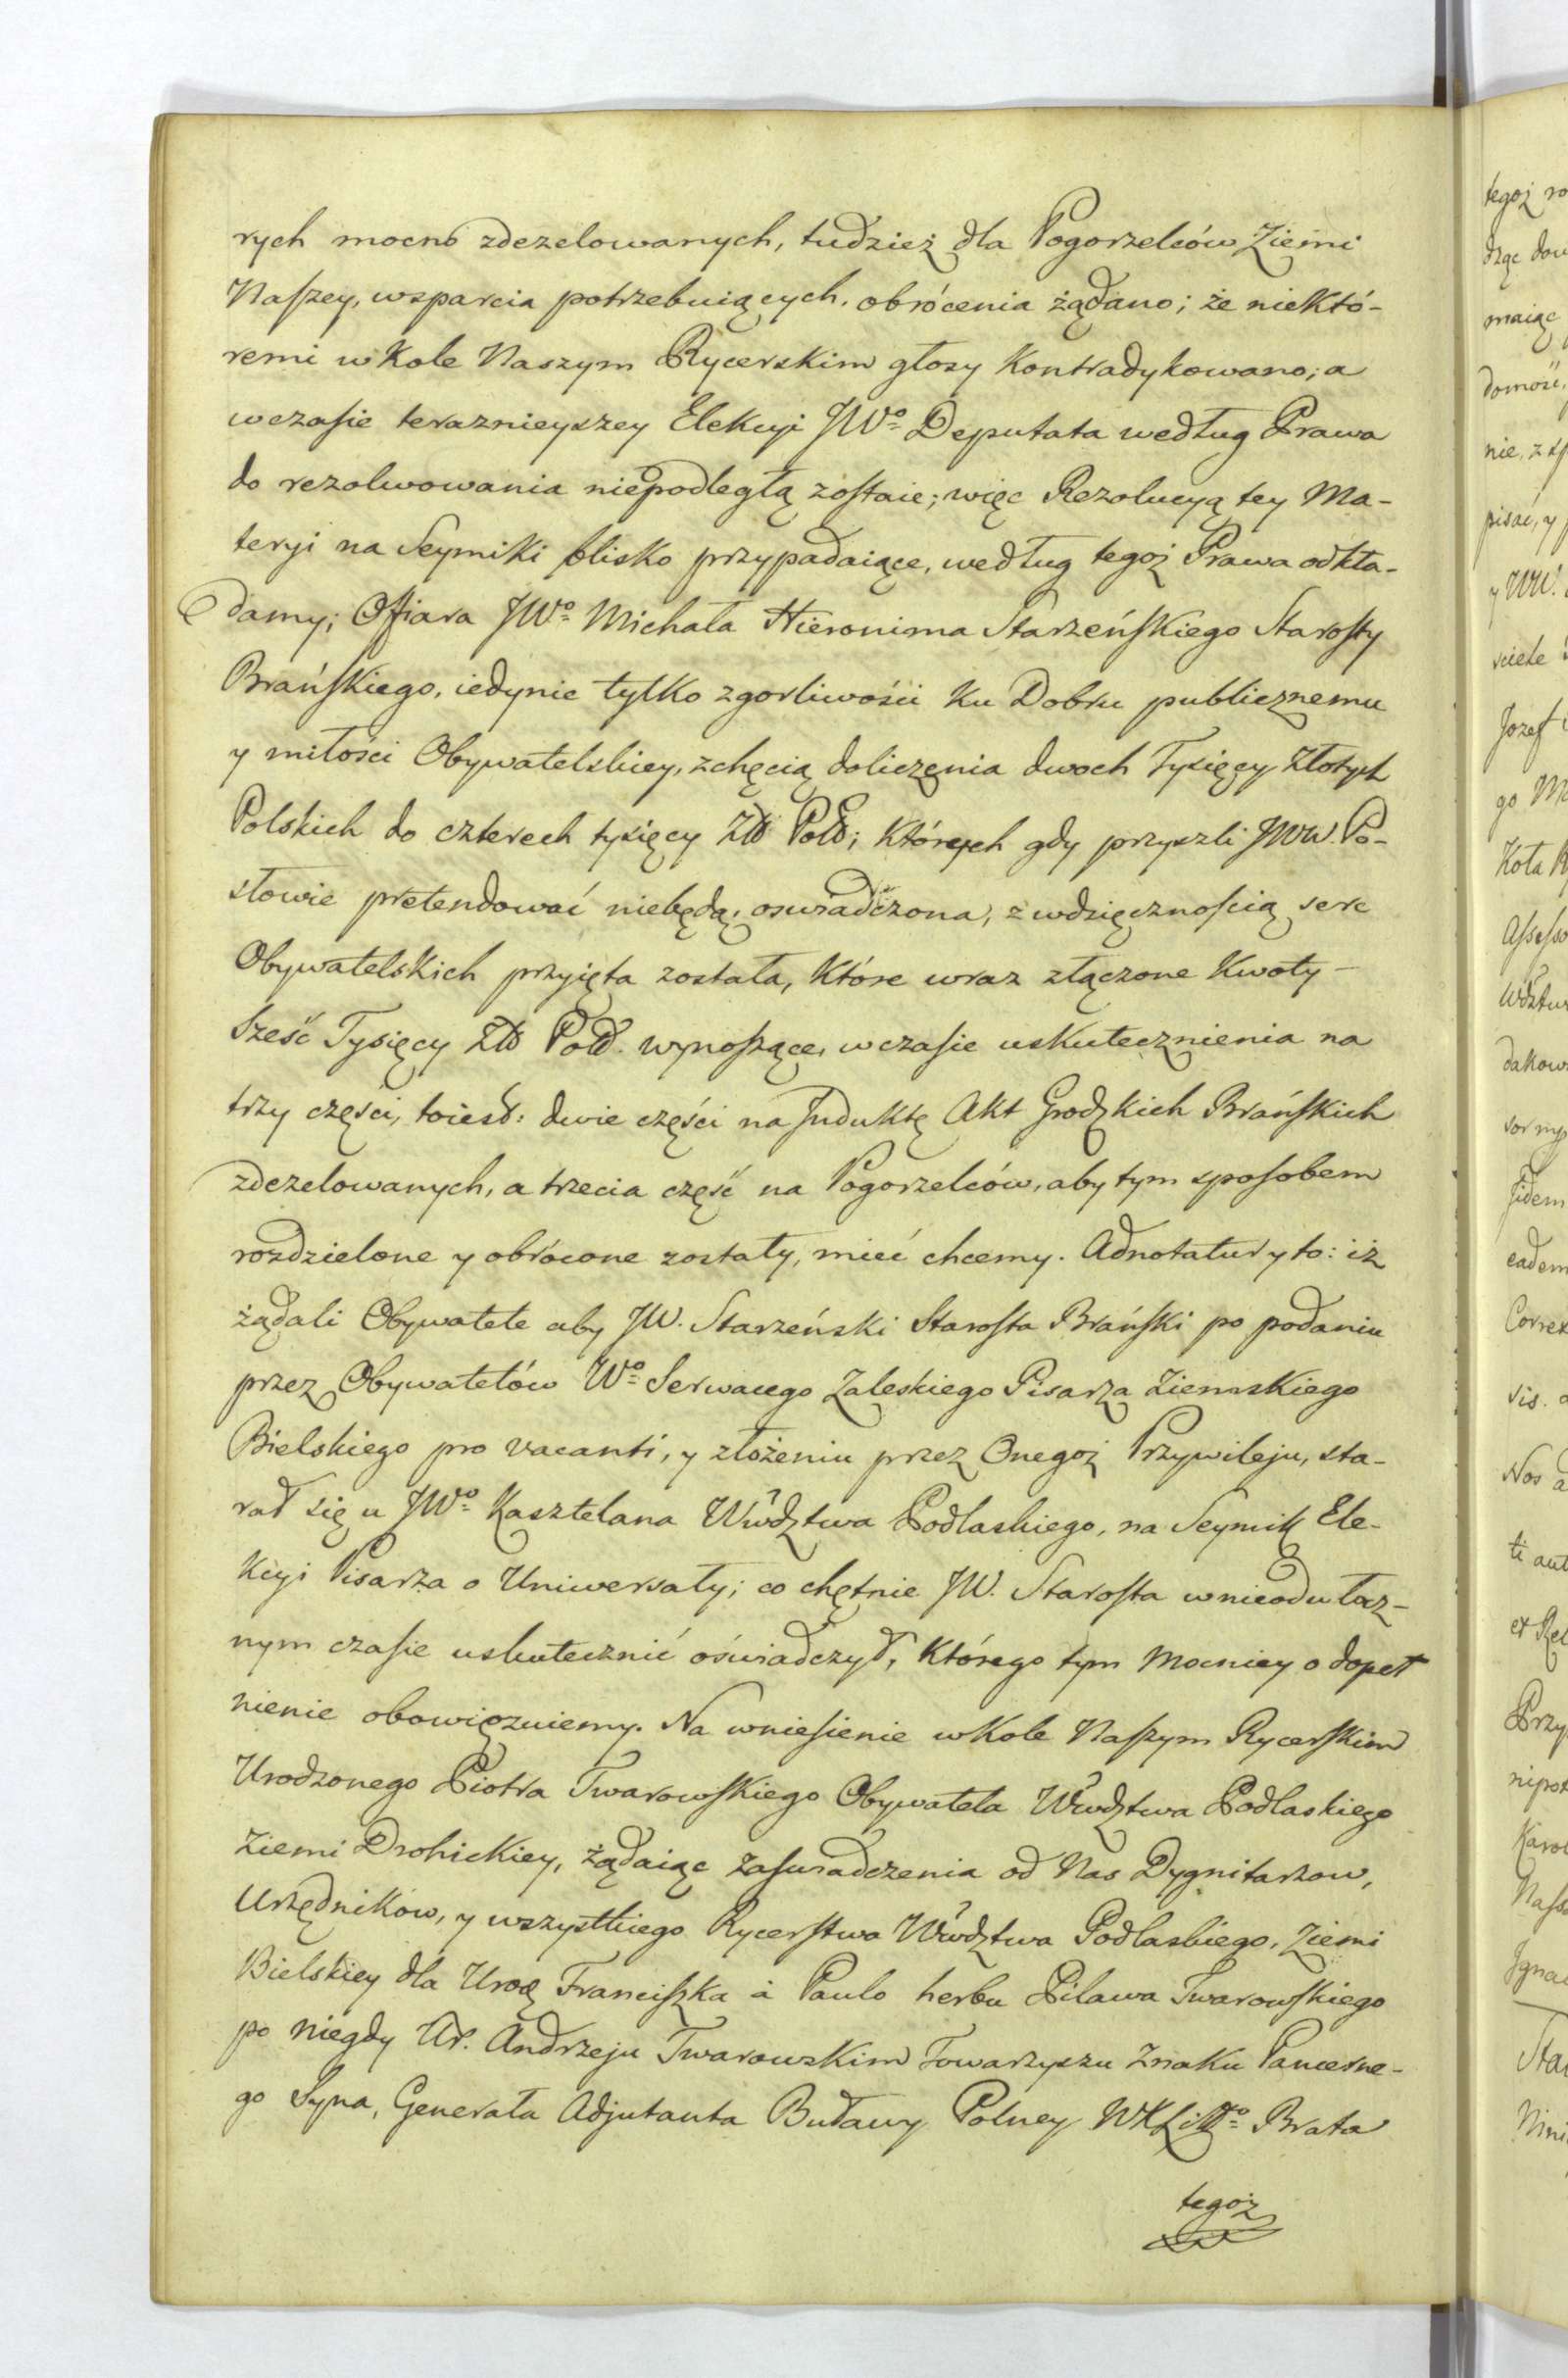 rych mocno zdezelowanych, tudzież dla Pogorzelców Ziemi
Naszey, wsparcia potrzebuiących, obrócenia żądano; że niektó-
remi w Kole Naszym Rycerskim głosy Kontradykowano; a
wczasie teraznieyszey Elekcyi JWo Deputata według Prawa
do rezolwowania niepodległą zostaie; więc Rezolucyą tey Ma-
teryi na Seymiki blisko przypadaiące, według tegoż Prawa odkła-
damy; Offiara JWo Michała Hieronima Starzeńskiego Starosty
Brańskiego, iedynie tylko zgorliwości Ku Dobru publicznemu
y miłości Obywatelskiey, zchęcią doliczenia dwoch Tysięcy Złotych
Polskich do czterech tysięcy Złł Poll; Których gdy przyszli JWW. Po-
słowie pretendować niebędą, oswiadczona, z wdzięcznością serc
Obywatelskich przyięta została, Które wraz złączone Kwoty –
Sześć Tysięcy Złł Poll. wynoszące, wczasie uskutecznienia na
trzy części, toiest: dwie części na Induktę Akt Grodzkich Brańskich
zdezelowanych, a trzecia część na Pogorzelców, aby tym sposobem
rozdzielone y obrócone zostały, mieć chcemy. Adnotatur y to: iż
żądali Obywatele aby JW. Starzeński Starosta Brański po podaniu
przez Obywatelów Wo Serwacego Zaleskiego Pisarza Ziemskiego
Bielskiego pro vacanti, y złożeniu przez Onegoż Przywileju, sta-
rał się u JWo Kasztelana Wwdztwa Podlaskiego, na Seymik Ele-
Kcyi Pisarza o Uniwersały; co chętnie JW. Starosta wnieodwłocz-
nym czasie uskutecznić oświadczył, Którego tym Mocniey o dopeł
nienie obowięzuiemy. Na wniesienie w Kole Naszym Rycerskim
Urodzonego Piotra Twarowskiego Obywatela Wwdztwa Podlaskiego
Ziemi Drohickiey, żądaiąc zaswiadczenia od Nas Dygnitarzow,
Urzędników, y wszystkiego Rycerstwa Wwdztwa Podlaskiego, Ziemi
Bielskiey dla Urodz Franciszka à Paulo herbu Pilawa Twarowskiego
po niegdy Ur. Andrzeju Twarowskim Towarzyszu Znaku Pancerne-
go Syna, Generała Adjutanta Buławy Polney WXLitto Brata
tegoż